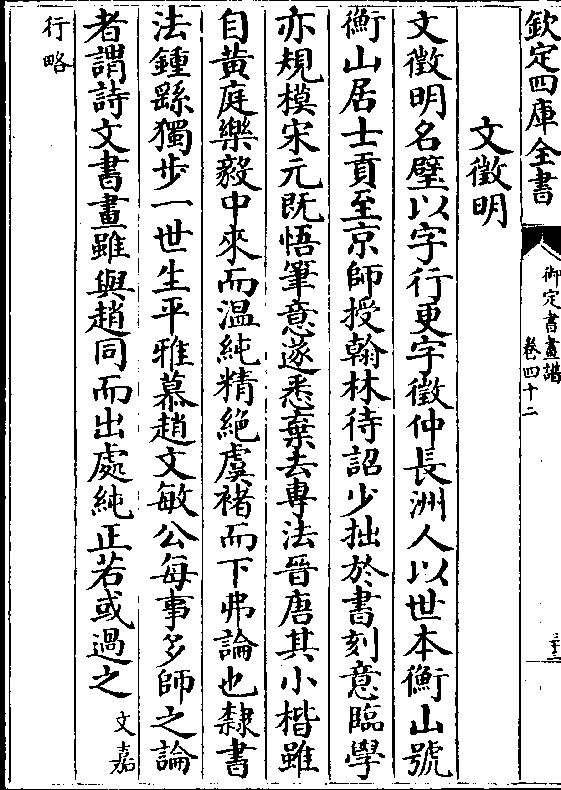 欽定四庫全書
御定書畫譜
卷四十二
文徴明
文徴明名壁以字行更字徴仲長洲人以世本衡山號
衡山居士貢至京師授翰林待詔少拙於書刻意臨學
亦規模宋元既悟筆意遂悉棄去專法晉唐其小楷雖
自黄庭樂毅中來而温純精絶虞褚而下弗論也隸書
法鍾繇獨步一世生平雅慕趙文敏公每事多師之論
者謂詩文書畫雖與趙同而出處純正若或過之文嘉
行略